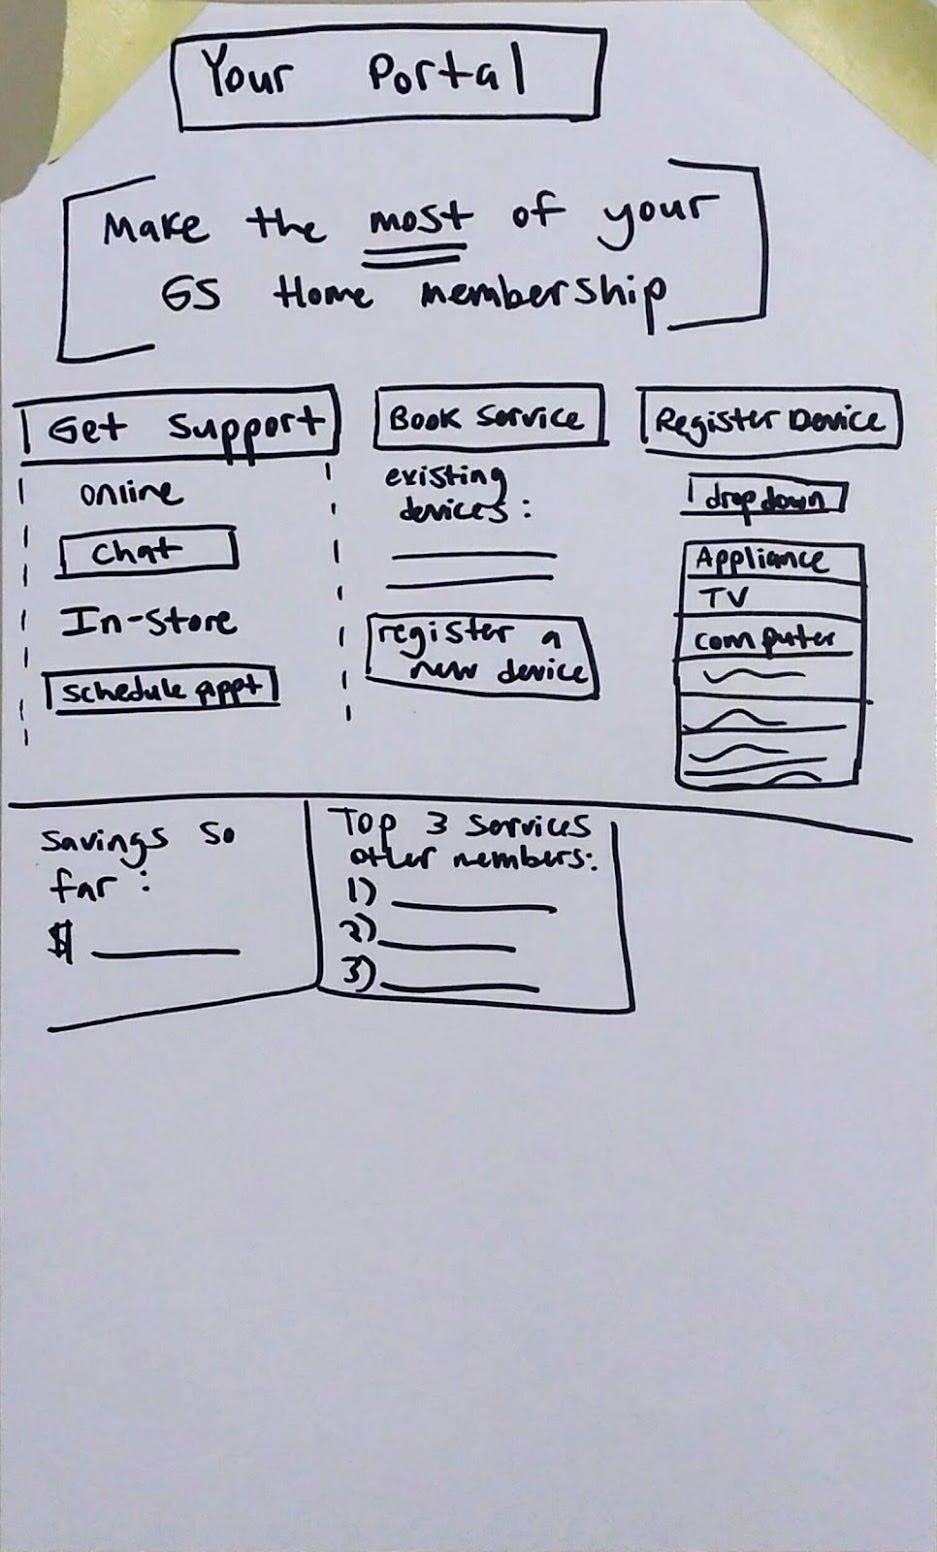 Your Portal
Make the most of your
GS Home membership
Get Support
online
Chat
In-store
Schedule appt
Book Service
existing
devices:
register a
new device
Register Device
dropdown
Appliance
TV
computer
Savings so
far:
$
Top 3 Services
other members:
1)
2)
3)